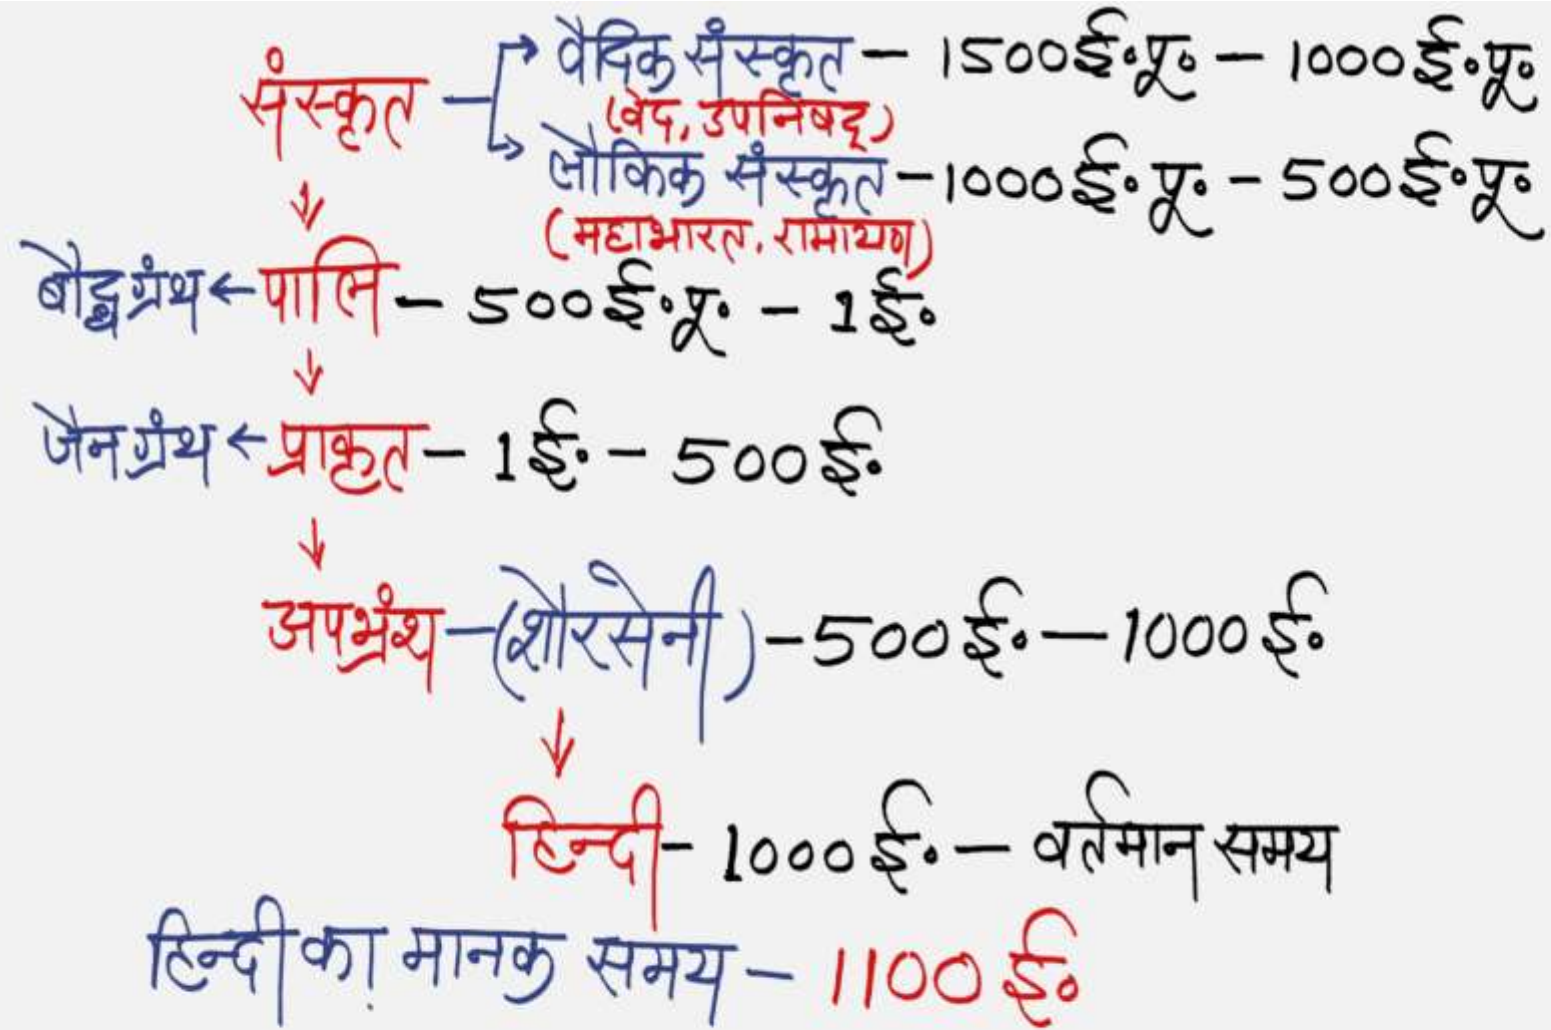 संस्कृत → वैदिक संस्कृत – 1500 ई॰पू॰ – 1000 ई॰पू॰
(वेद, उपनिषद्)
→ लौकिक संस्कृत – 1000 ई॰पू॰ – 500 ई॰पू॰
(महाभारत, रामायण)
↓
बौद्ध ग्रंथ ← पालि – 500 ई॰पू॰ – 1 ई॰
↓
जैन ग्रंथ ← प्राकृत – 1 ई॰ – 500 ई॰
↓
अपभ्रंश – (शौरसेनी) – 500 ई॰ – 1000 ई॰
↓
हिन्दी – 1000 ई॰ – वर्तमान समय
हिन्दी का मानक समय – 1100 ई॰